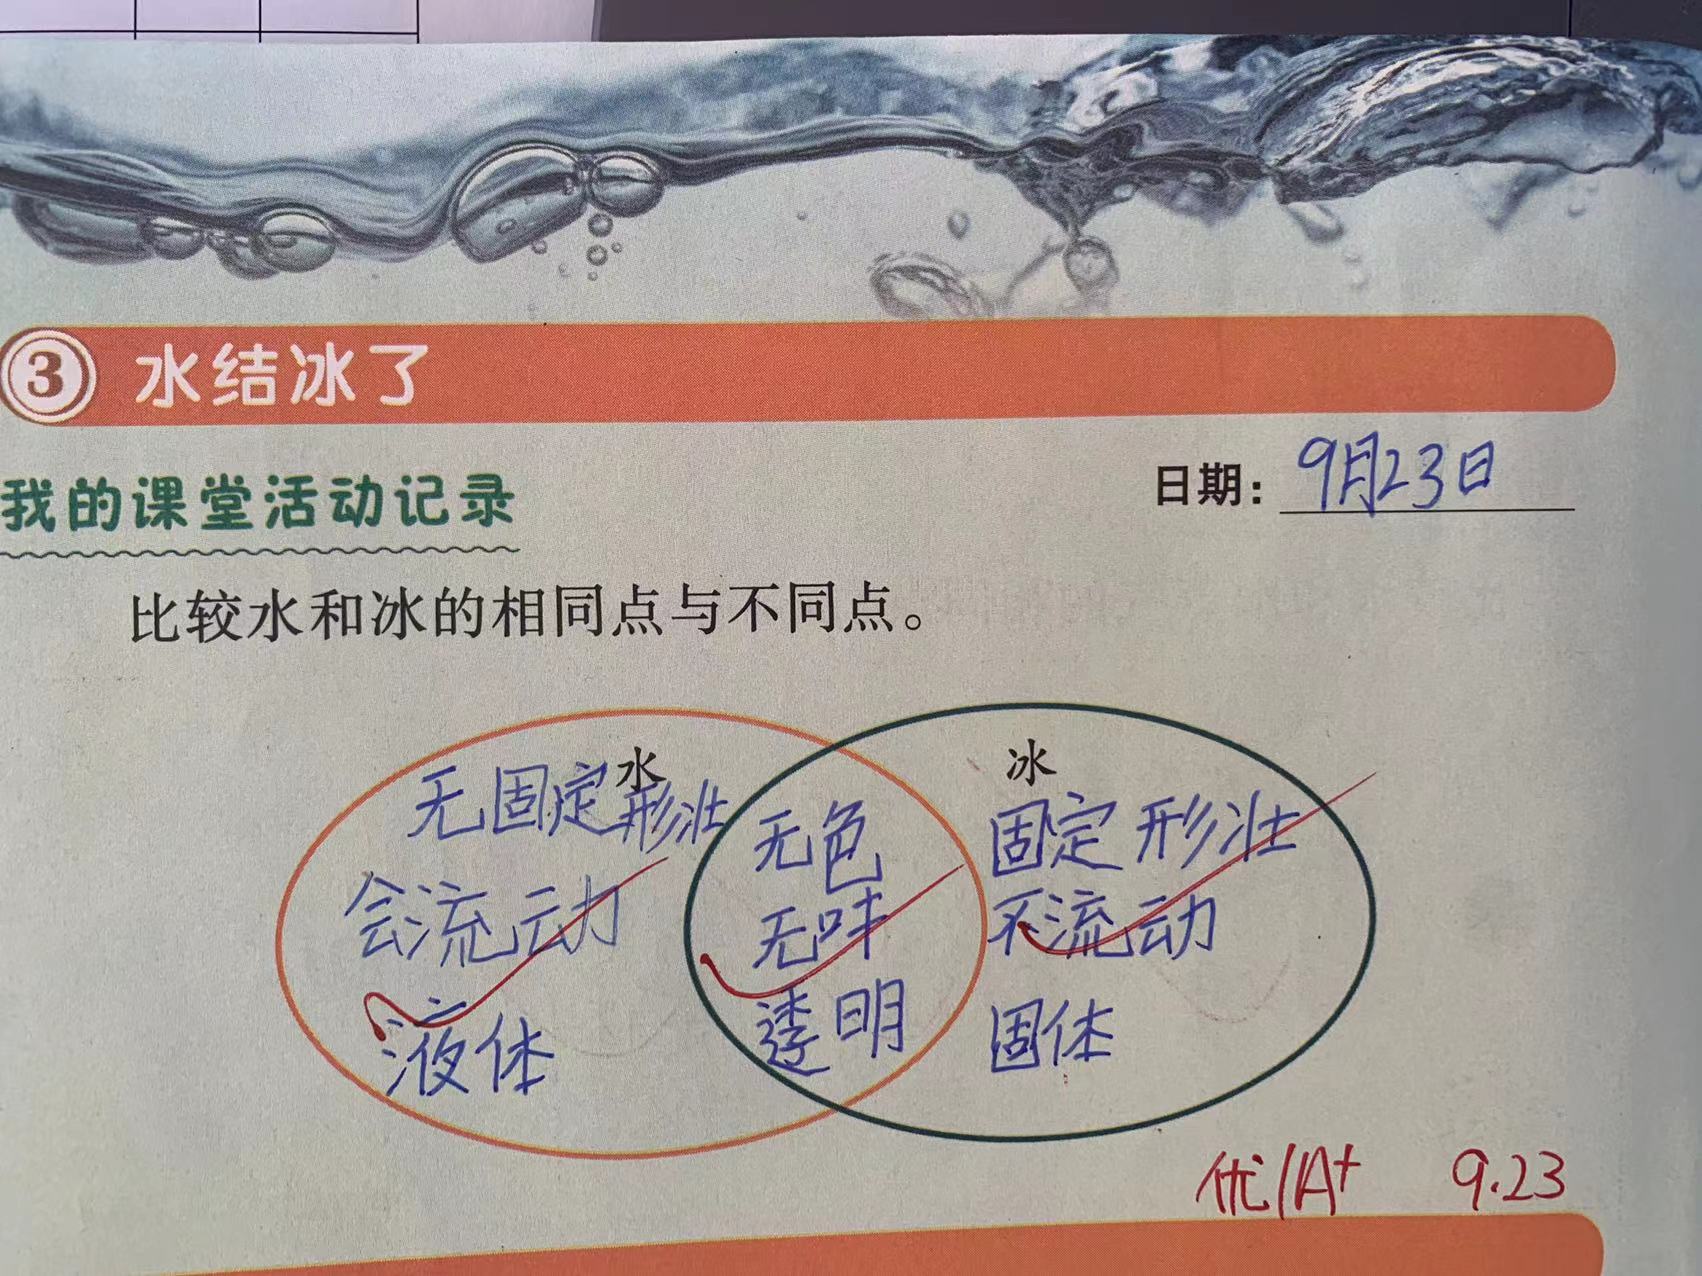 3 水结冰了
我的课堂活动记录
日期：9月23日
比较水和冰的相同点与不同点。
水
无固定形壮
会流动
液体
无色
无味
透明
冰
固定形壮
不流动
固体
优/A+ 9.23